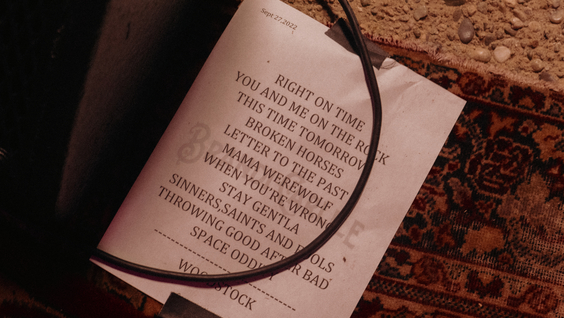 Sept 27,2022
RIGHT ON TIME
YOU AND ME ON THE ROCK
THIS TIME TOMORROW
BROKEN HORSES
LETTER TO THE PAST
MAMA WEREWOLF
WHEN YOU'RE WRONG
STAY GENTLA
SINNERS,SAINTS AND FOOLS
THROWING GOOD AFTER BAD
SPACE ODDITY
WOODSTOCK